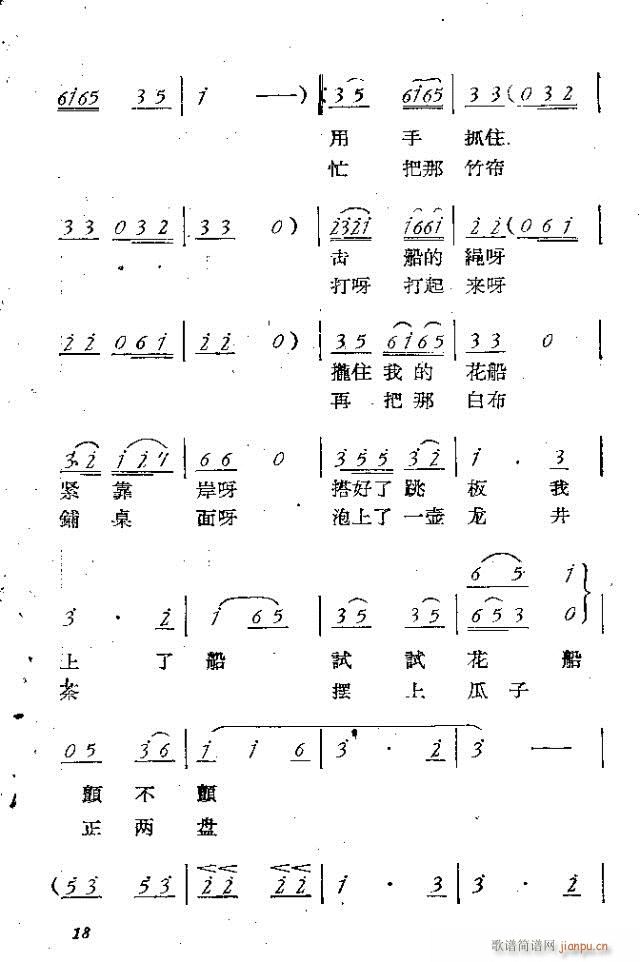 6i65 35 | i — ) |: 35 6i65 | 33 ( 032 |
用 手 抓住
忙 把那 竹帘
33 032 | 33 0 ) | i323i i66i | 22 ( 06i |
船的 繩呀
打呀 打起 来呀
22 06i | 22 0 ) | 35 6i65 | 33 0 |
攏住 我的 花船
再 把那 白布
32 i2i | 66 0 | 3553 32 | i · 3 |
紧 靠 岸呀 搭好了 跳 板 我
鋪 桌 面呀 泡上了 一壶 龙 井
65 i
3 · 2 | i 65 | 35 35 | 653 0 |
上 了 船 試 試 花 船
茶 摆 上 瓜 子
05 36 | i i 6 | 3 · 2 | 3 — |
顫 不 顫
正 两 盘
( 53 53 | 22 22 | i · 3 | 3 · 2 |
18
歌谱简谱网 jianpu.cn